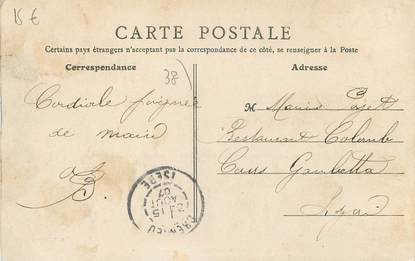 15 €
CARTE POSTALE
Certains pays étrangers n'acceptant pas la correspondance de ce côté, se renseigner à la Poste
Correspondance
38
Adresse
Cordiale poignée
de main
M
Restaurant Colomb
Cours Gambetta
Lyon
CREMIEU
ISERE
AOUT
07